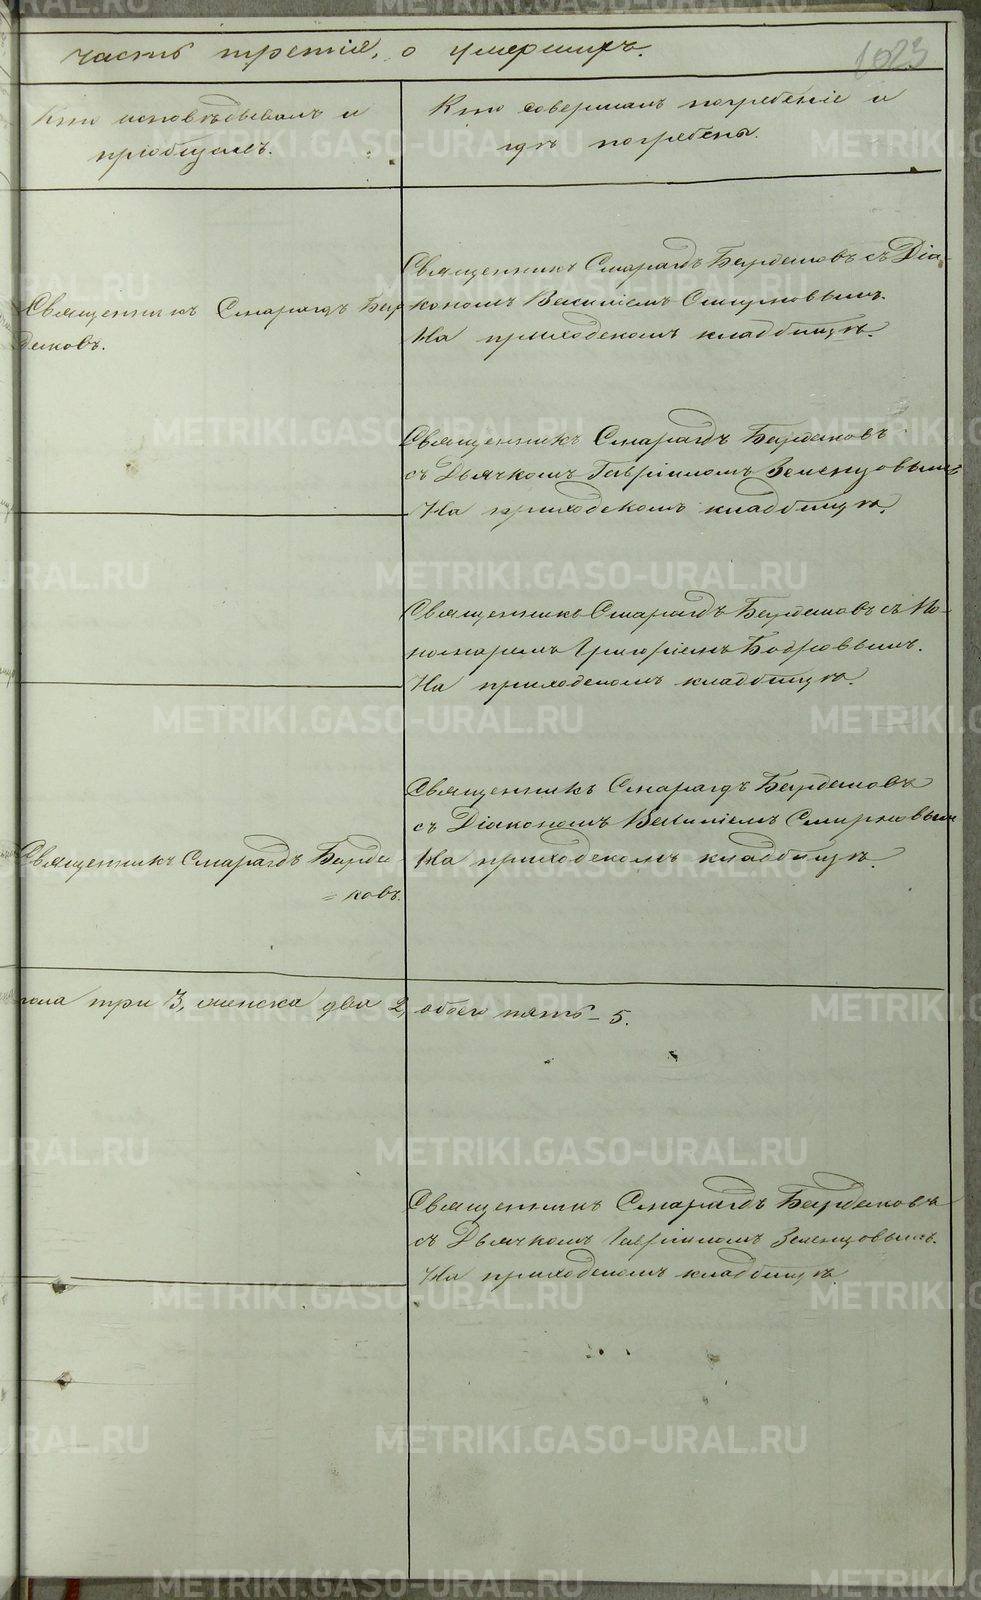 часть третія, о умершихъ.
1023
Кто исповѣдывалъ и
пріобщалъ.
Кто совершалъ погребеніе и
гдѣ погребены.
Священникъ Смарагдъ Бар
даковъ.
Священникъ Смарагдъ Бардаковъ съ Діа-
кономъ Василіемъ Смирновымъ.
На приходскомъ кладбищѣ.
Священникъ Смарагдъ Бардаковъ
съ Дьячкомъ Гавріиломъ Земенцовымъ
На приходскомъ кладбищѣ.
Священникъ Смарагдъ Бардаковъ съ По-
номаремъ Григоріемъ Бобровымъ.
На приходскомъ кладбищѣ.
Священникъ Смарагдъ Бардаковъ
съ Діакономъ Василіемъ Смирновым
На приходскомъ кладбищѣ.
Священникъ Смарагдъ Барда
=ковъ.
пола три 3, женска два 2, обоего пять – 5.
Священникъ Смарагдъ Бардаковъ
съ Дьячкомъ Гавріиломъ Земенцовымъ.
На приходскомъ кладбищѣ.
METRIKI.GASO-URAL.RU